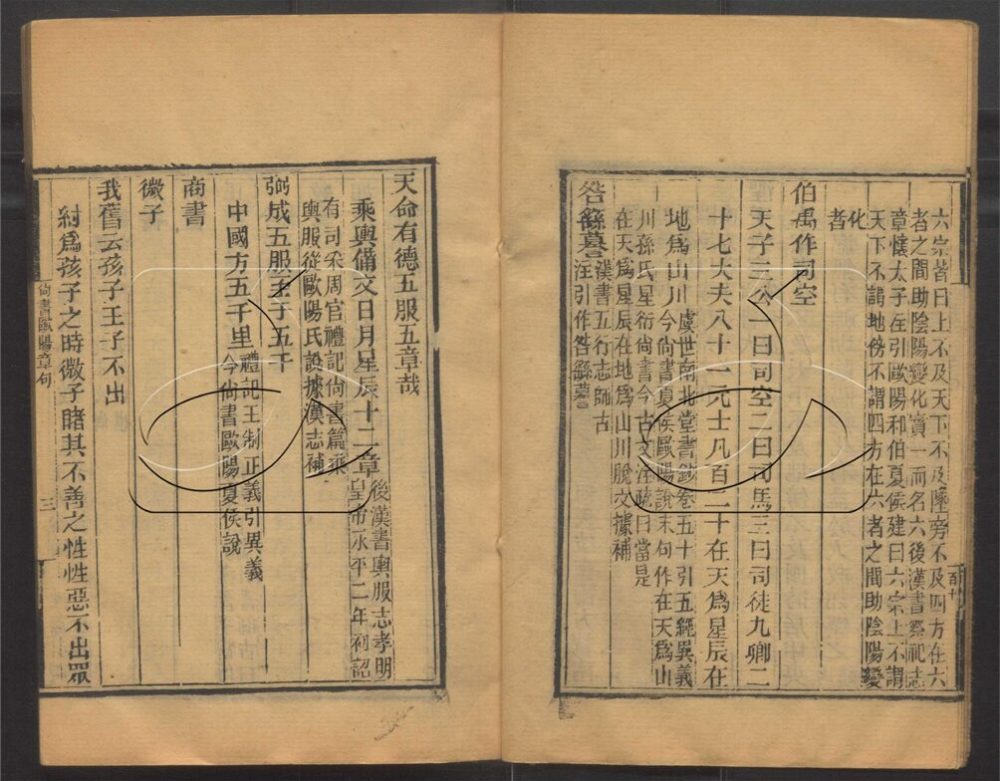 六宗皆曰上不及天下不及墬旁不及四方在六
者之間助陰陽變化實一而名六後漢書祭祀志
章懷太子注引歐陽和伯夏侯建曰六宗上不謂
天下不謂地傍不謂四方在六者之間助陰陽變
化
者
伯禹作司空
天子三公一曰司空二曰司馬三曰司徒九卿二
十七大夫八十一元士凡百二十在天爲星辰在
地爲山川虞世南北堂書鈔卷五十引五經異義
今尚書夏侯歐陽說末句作在天爲山
川孫氏星衍尚書今古文注疏曰當是
在天爲星辰在地爲山川脫文據補
咎繇謩漢書五行志師古
注引作咎繇謩
天命有德五服五章哉
乘輿備文日月星辰十二章後漢書輿服志孝明
皇帝永平二年初詔
有司采周官禮記尚書篇乘
輿服從歐陽氏說據漢志補
弼成五服至于五千
中國方五千里禮記王制正義引異義
今尚書歐陽夏侯說
商書
微子
我舊云孩子王子不出
紂爲孩子之時微子睹其不善之性性惡不出眾
尚書歐陽章句
三